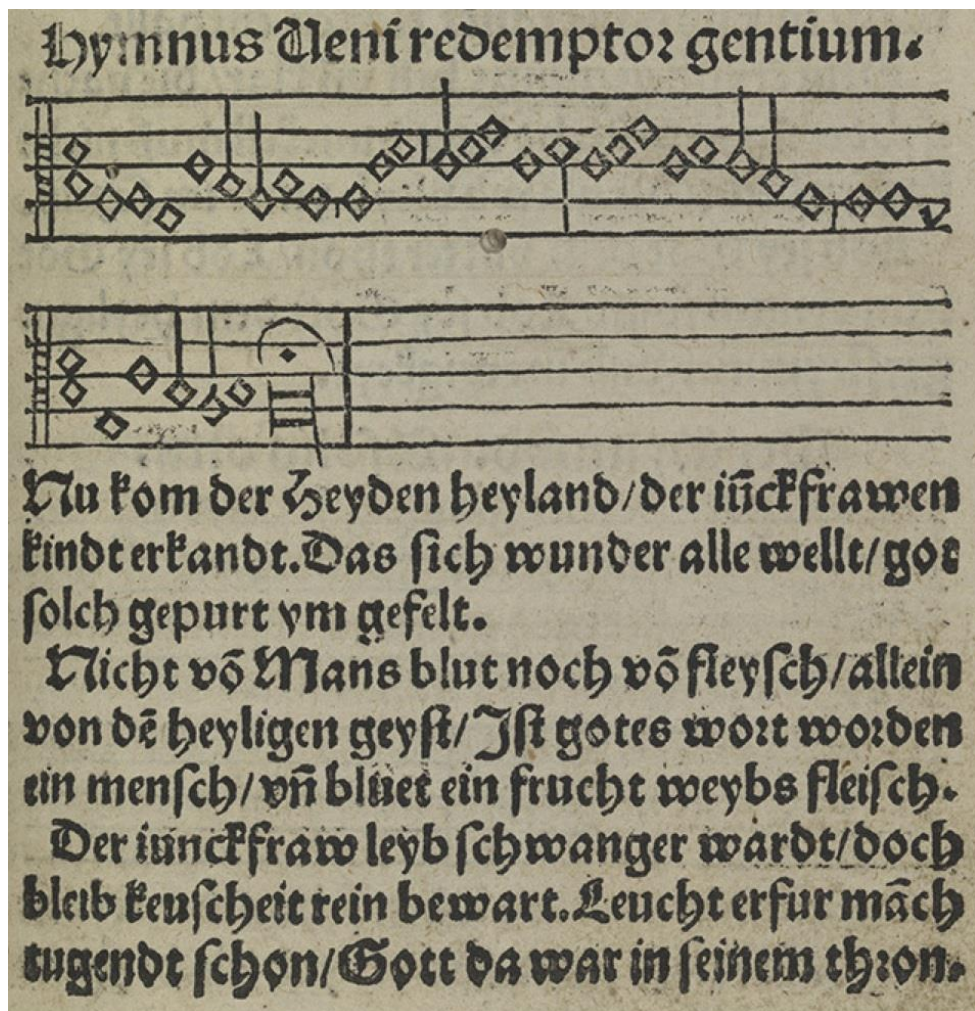 Hymnus Veni redemptor gentium.
Nu kom der Heyden heyland/der iūckfrawen
kindt erkandt. Das sich wunder alle wellt/got
solch gepurt ym gefelt.
Nicht vō Mans blut noch vō fleysch/allein
von dē heyligen geyst/Ist gotes wort worden
ein mensch/vn̄ bluet ein frucht weybs fleisch.
Der iunckfraw leyb schwanger wardt/doch
bleib keuscheit rein bewart. Leucht erfur māch
tugendt schon/Gott da war in seinem thron.